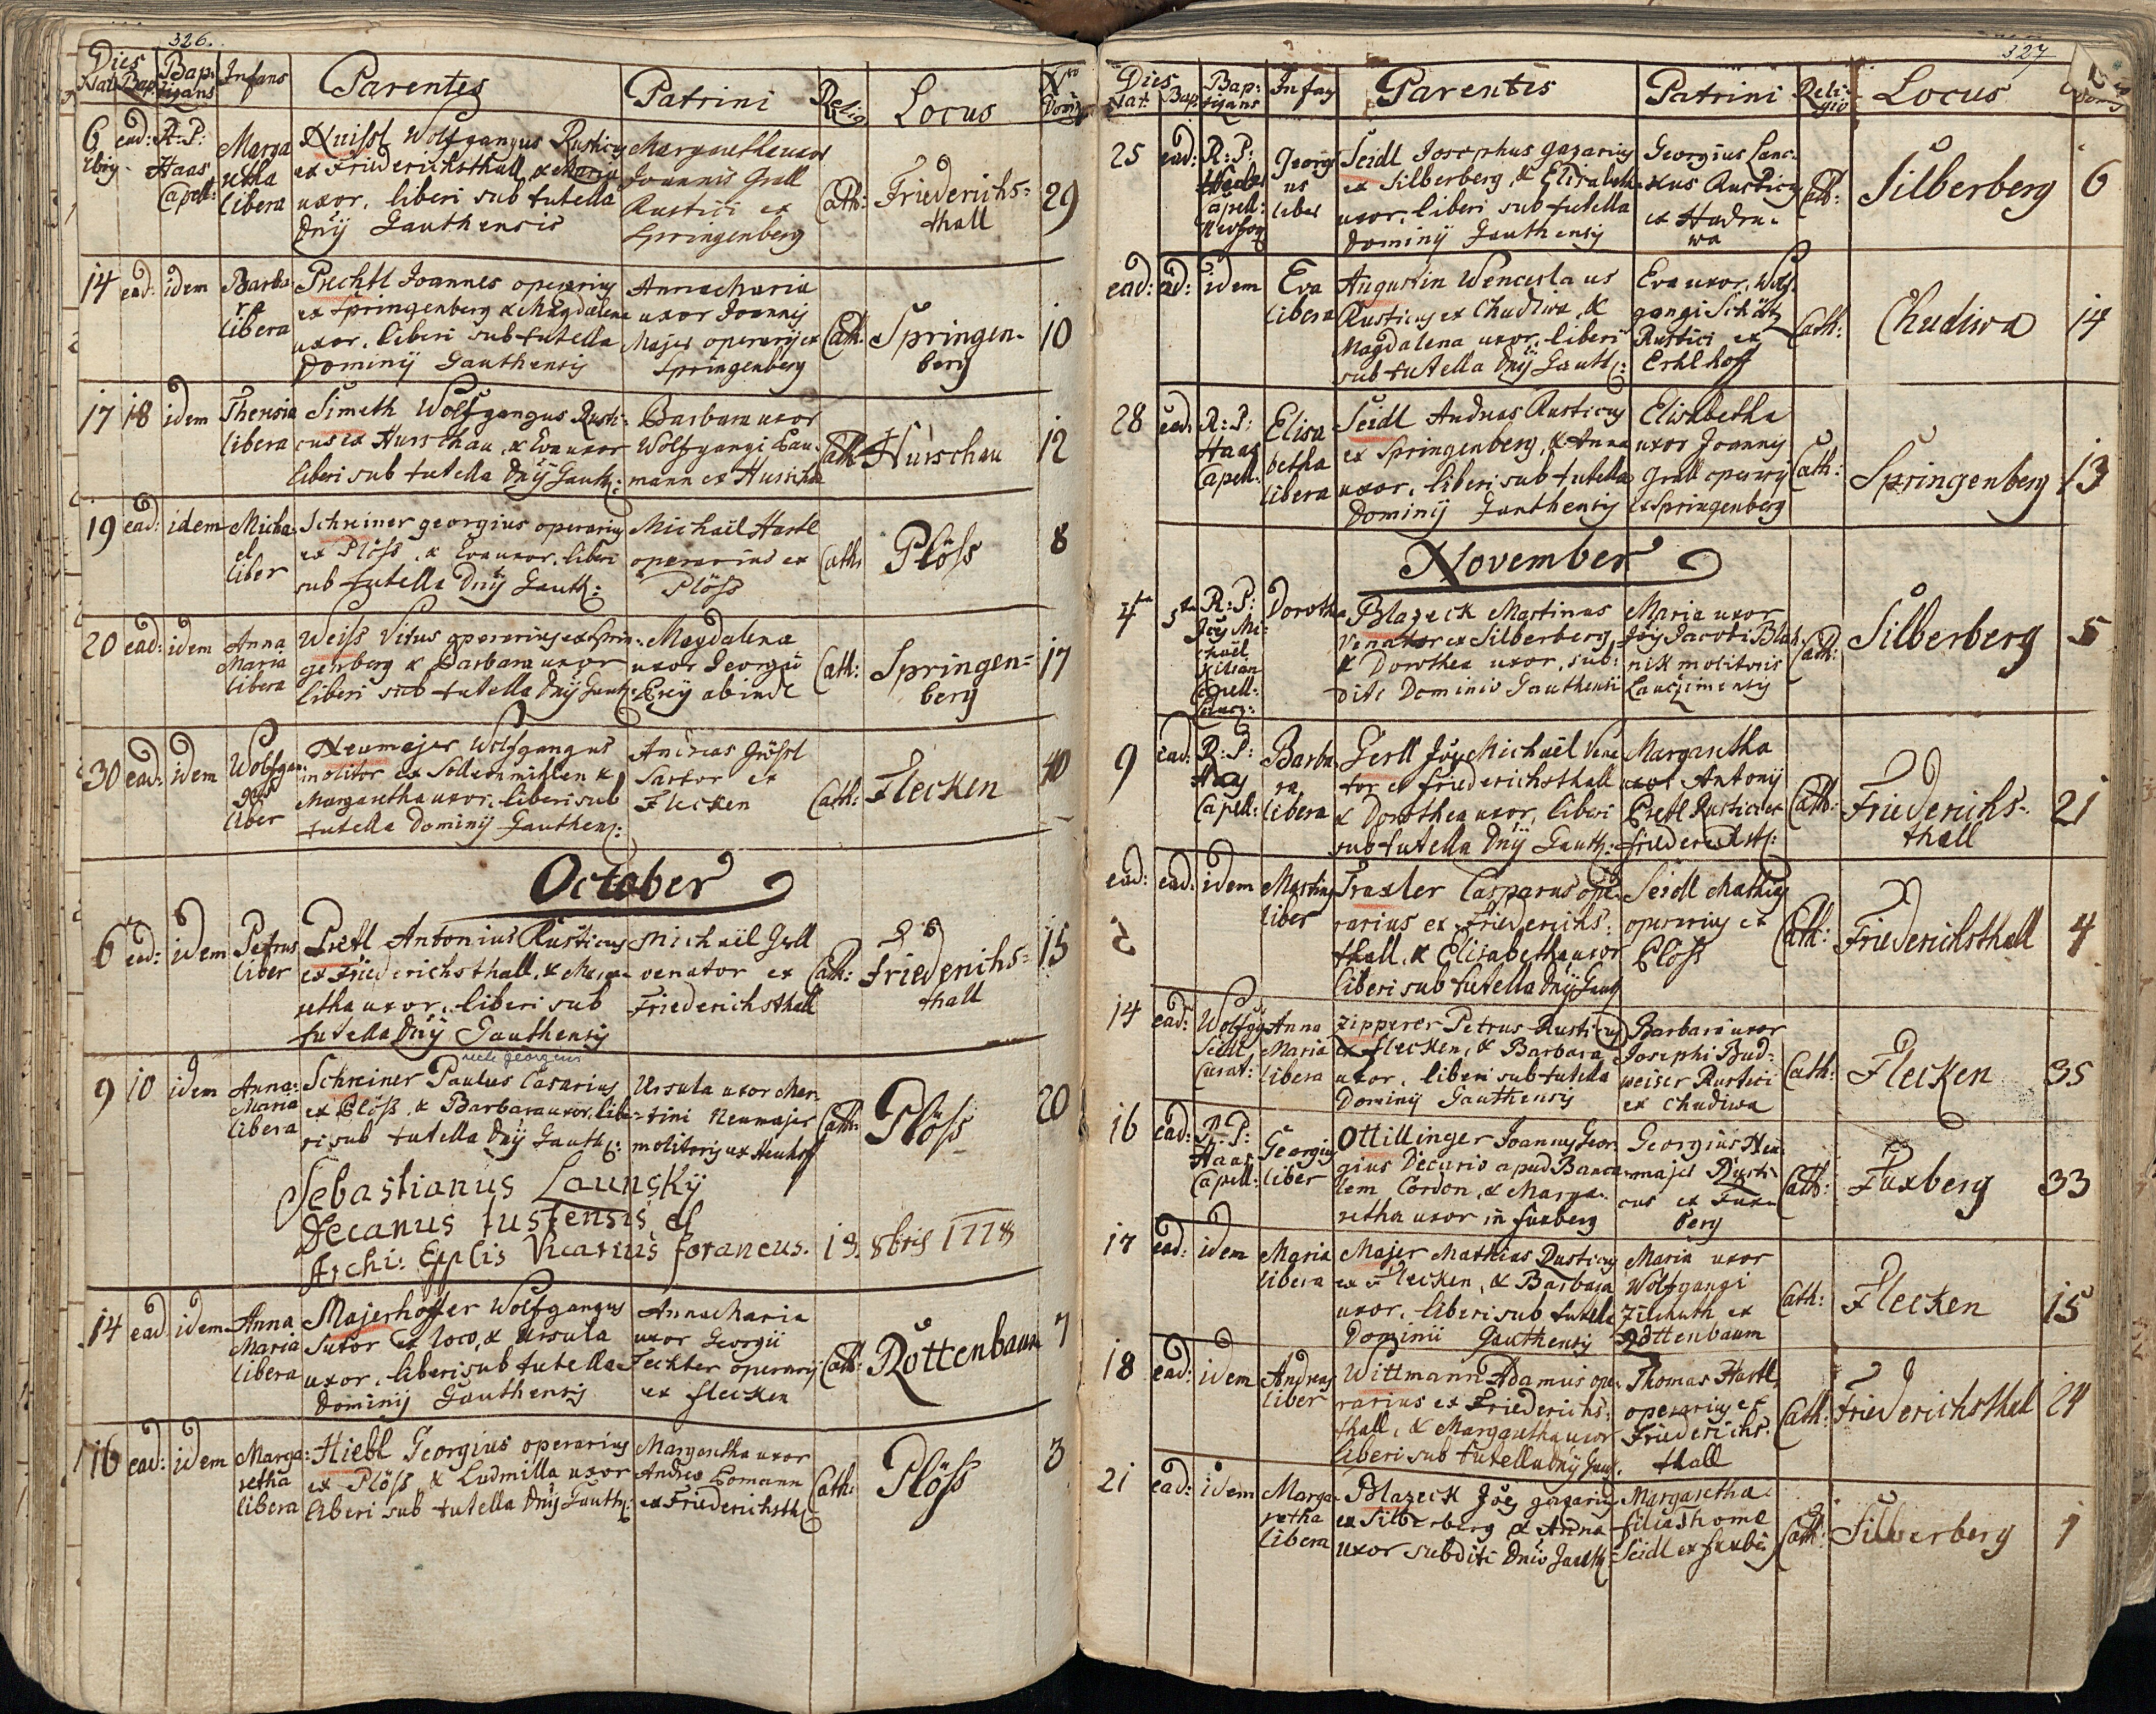 326.
Dies Nat: Bap: Bap: tizans Infans Parentes Patrini Relig Locus Nro Dom:
6 ead: R: P: Haas Capell:
Marga
retha
libera
Wolfgangus Rusticus
ex Friederichsthall, & Maria
uxor, liberi sub tutella
Dnÿ Gauthensis
Margaretha uxor
Joannis Grall
Rustici ex
Springenberg
Cath:
Friederichs=
thall
29
14 ead: idem
Barba
ra
libera
Prechtl Joannes operarius
ex Springenberg & Magdalena
uxor, liberi sub tutella
Dominÿ Gauthensis
Annamaria
uxor Joannis
Majer operarÿ ex
Springenberg
Cath:
Springen-
berg
10
17 18 idem
Theresia
libera
Simeth Wolfgangus Rusti:
cus ex Hurschau, & Eva uxor
liberi sub tutella Dnÿ Gauth:
Barbara uxor
Wolfgangi Lau:
mann ex Hurschau
Cath
Hurschau
12
19 ead: idem
Micha
el
liber
Schreiner georgius operarius
ex Plöss, & Eva uxor, liberi
sub tutella Dnÿ Gauth:
Michaël Hartl
operarius ex
Plöss
Cath:
Plöss
8
20 ead: idem
Anna
Maria
libera
Weiss Vitus operarius ex Sprin:
genberg & Barbara uxor
liberi sub tutella Dnÿ Gauth:
Magdalena
uxor Georgii
abinde
Cath:
Springen=
berg
17
30 ead: idem
Wolfgan:
gus
liber
Neumajer Wolfgangus
molitor ex &
Margaretha uxor, liberi sub
tutella Dominÿ Gauthens:
Andreas
Sartor ex
Flecken
Cath:
Flecken
40
October
6 ead: idem
Petrus
liber
Pretl Antonius Rusticus
ex Friederichsthall, & Marga-
retha uxor, liberi sub
tutella Dnÿ Gauthensis
Michaël Gerll
venator ex
Friederichsthall
Cath:
Friederichs=
thall
15
9 10 idem
Anna:
Maria
libera
recte georgius
Schreiner Paulus Casarius
ex Plöss, & Barbara uxor, libe-
ri sub tutella Dnÿ Gauth:
Ursula uxor Mar-
tini Neumajer
molitoris ex
Cath:
Plöss
20
Sebastianus Launskÿ
Decanus Tustensis et
Archi: Epplis Vicarius foraneus. 13. 8bris 1778
14 ead idem
Anna
Maria
libera
Majerhöffer Wolfgangus
Sutor ex loco, & Ursula
uxor, liberi sub tutella
Dominÿ Gauthensis
Annamaria
uxor Georgii
Feckter operarÿ
ex flecken
Cath:
Rottenbaum
7
16 ead: idem
Marga:
retha
libera
Hiebl Georgius operarius
ex Plöss & Ludmilla uxor
liberi sub tutella Dnÿ Gauth:
Margaretha uxor
Andreæ Lomann
ex Friederichsth:
Cath:
Plöss
3
327
Dies Nat: Bap: Bap: tizans Infans Parentes Patrini Reli: gio Locus
25 ead: R: P: Capell:
Georgi
us
liber
Seidl Josephus gazarius
ex Silberberg, & Elisabeth
uxor, liberi sub tutella
Dominÿ Gauthensis
Georgius
Rusticus
ex Hadru-
wa
Cath:
Silberberg
6
ead: ead: idem
Eva
libera
Augustin Wenceslaus
Rusticus ex Chudiwa, &
Magdalena uxor, liberi
sub tutella Dnÿ Gauth:
Eva uxor Wolf-
gangi Schätz
Rustici ex
Erhlhoff
Cath:
Chudiwa
14
28 ead: R: P: Haas Capell:
Elisa
betha
libera
Seidl Andreas Rusticus
ex Springenberg, & Anna
uxor, liberi sub tutella
Dominÿ Gauthensis
Elisabetha
uxor Joannis
Grall operarÿ
ex Springenberg
Cath:
Springenberg
13
November
4ta 5ta R: P: Joës Mi: chaël Kilian Capell:
Doroth
Blazeck Martinus
Venator ex Silberberg,
& Dorothea uxor, sub:
diti Dominio Gauthensi
Maria uxor
Jacobi
molitoris
Cath:
Silberberg
5
9 ead: R: P: Haas Capell:
Barba
ra
libera
Gerll Joës Michaël Vena
tor ex friederichsthall
& Dorothea uxor, liberi
sub tutella Dnÿ Gauth:
Margaretha
uxor Antonÿ
Pretl Rustici ex
friederichst:
Cath:
Friederichs-
thall
21
ead: ead: idem
Martinus
liber
Traxler Casparus ope-
rarius ex Friederichs:
thall, & Elisabetha uxor
liberi sub tutella Dnÿ Gauth
Seidl Mathias
operarius ex
Plöss
Cath:
Friederichsthall
4
14 ead: Wolfgg Seidl Curat:
Anna
Maria
libera
Zipperer Petrus Rusticus
ex flecken, & Barbara
uxor, liberi sub tutella
Dominÿ Gauthensis
Barbara uxor
Josephi Bud:
weiser Rustici
ex Chudiwa
Cath:
Flecken
35
16 ead: R: P: Haas Capell:
Georgius
liber
Ottillinger Joannes Geor-
gius Decario apud Banca-
lem Cordon, & Marga-
retha uxor in fuxberg
Georgius Neu
majer Rusti-
cus ex Fux-
berg
Cath:
Fuxberg
33
17 ead: idem
Maria
libera
Majer Mathias Rusticus
ex Flecken, & Barbara
uxor, liberi sub tutella
Dominii Gauthensis
Maria uxor
Wolfgangi
ex
Rottenbaum
Cath:
Flecken
15
18 ead: idem
Andreas
liber
Wittmann Adamus ope-
rarius ex Friederichs:
thall, & Margaretha uxor
liberi sub tutella Dnÿ Gauth.
Thomas Hartl
operarius ex
Friederichs:
thall
Cath:
Friederichsthal
24
21 ead: idem
Marga-
retha
libera
Blazeck Joës gazarius
ex Silberberg & Anna
uxor subditi Dnio Gauth:
Margaretha
filia Thomæ
Seidl ex fuxbe
Cath:
Silberberg
1